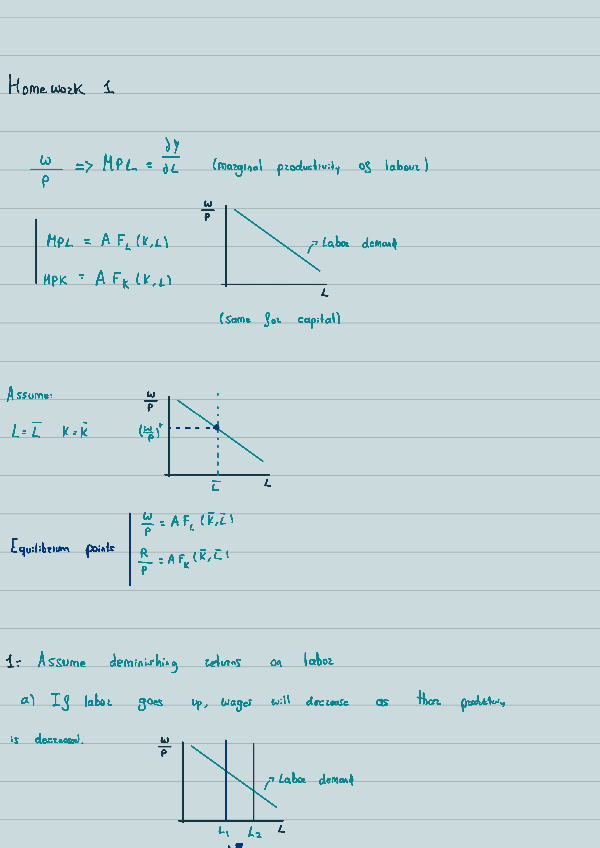 Homework 1
w/P => MPL = ∂Y/∂L (marginal productivity of labour)
w/P
MPL = A F_L (K,L)
Labor demand
MPK = A F_K (K,L)
L
(same for capital)
Assume:
w/P
L = L̄ K = K̄
(w/P)*
L̄ L
Equilibrium points
w/P = A F_L (K̄,L̄)
R/P = A F_K (K̄,L̄)
1: Assume deminishing returns on labor
a) If labor goes up, wages will decrease as
is decreased.
w/P
Labor demand
L₁ L₂ L